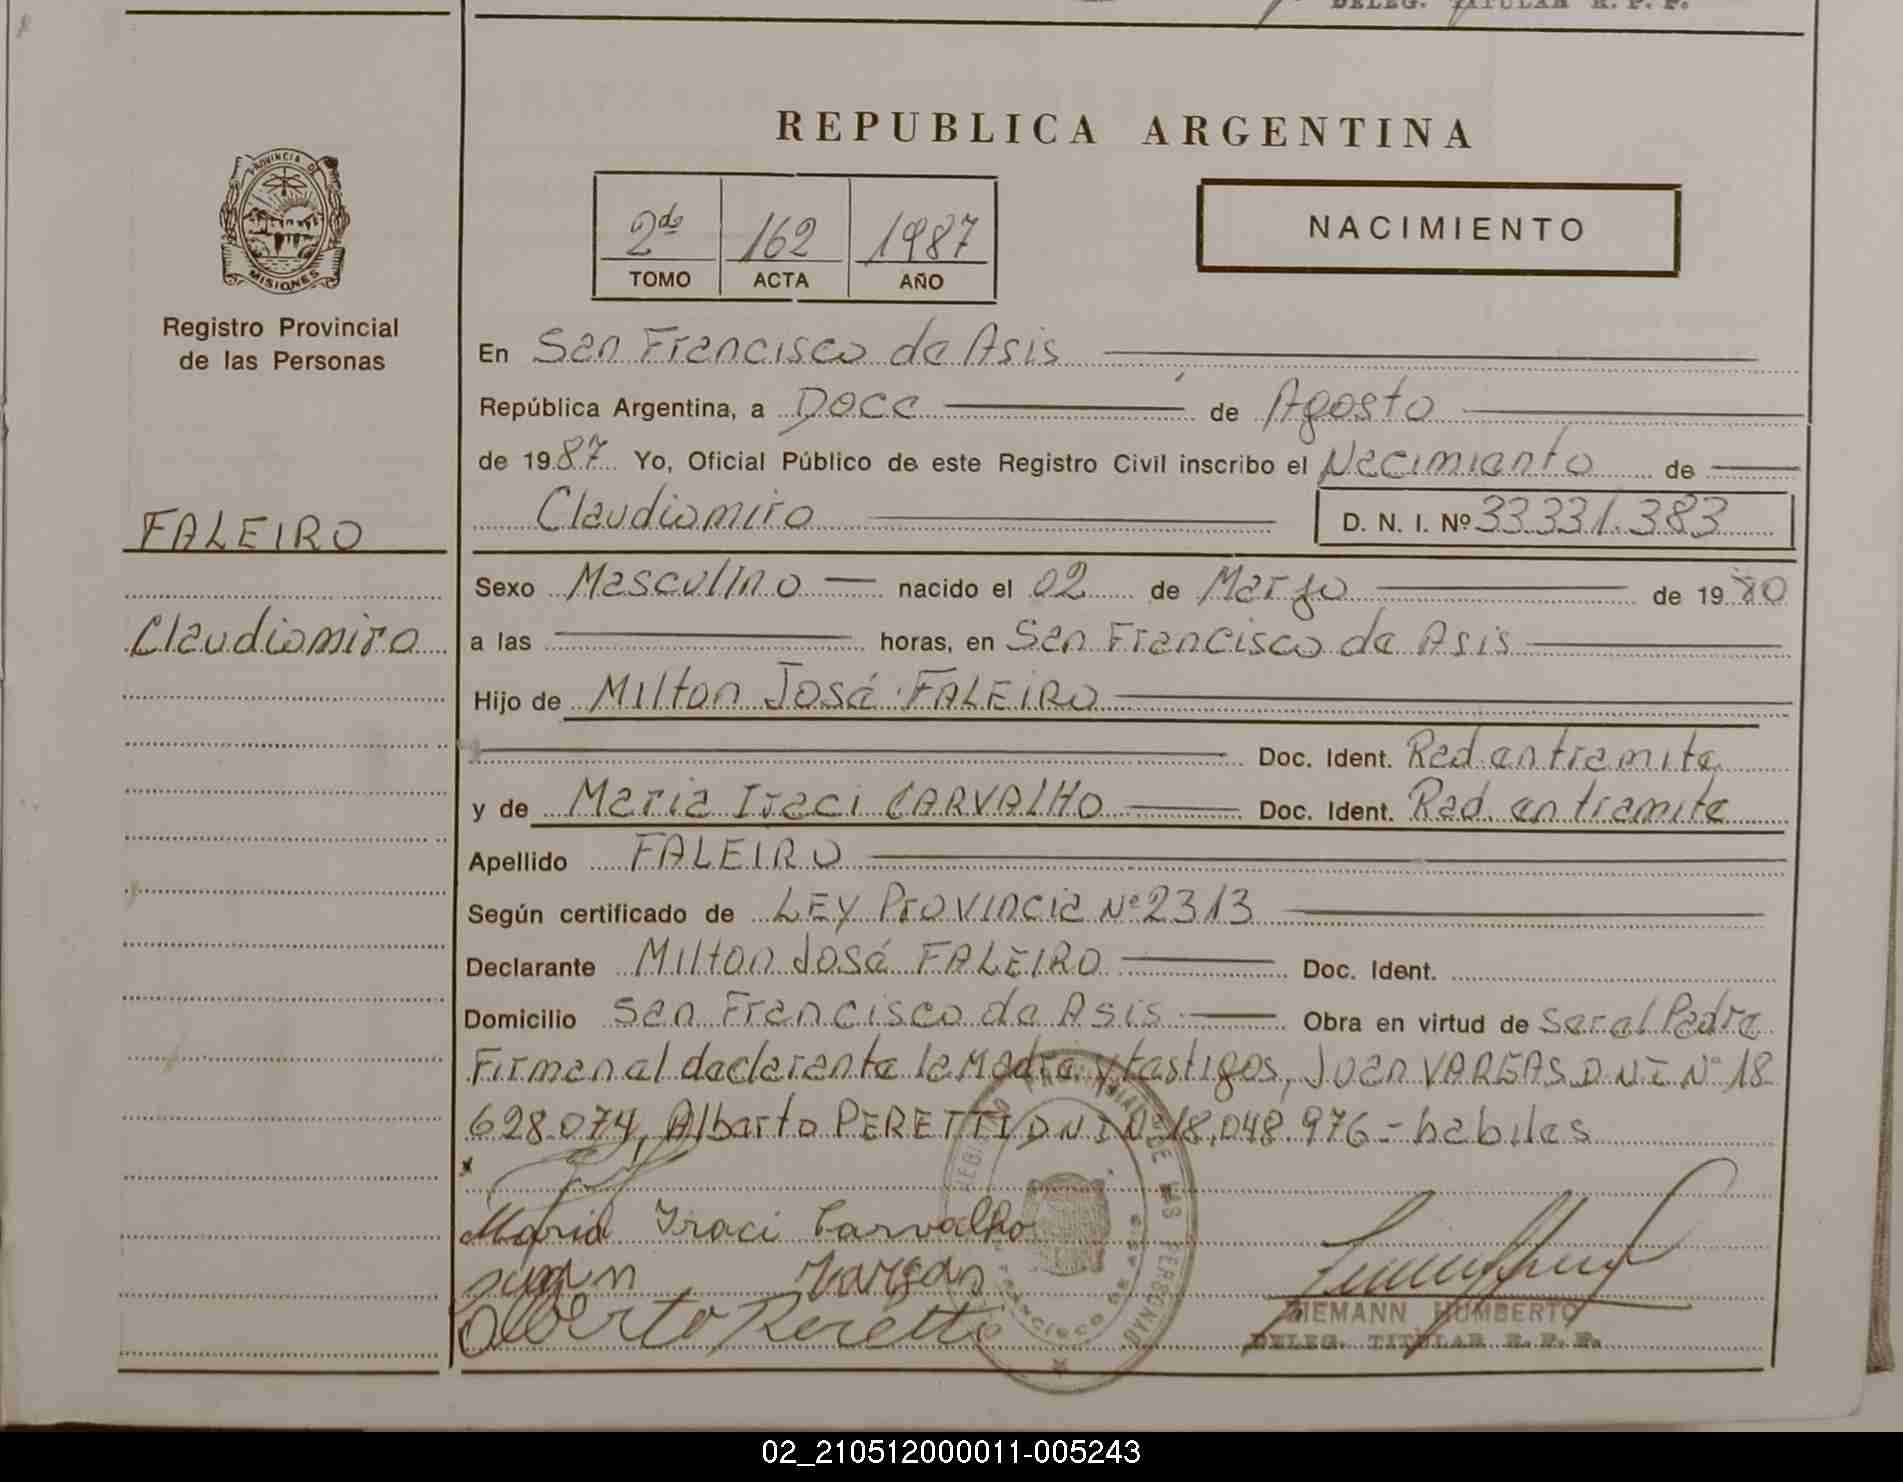 DELEG. TITULAR R. P. P.
REPUBLICA ARGENTINA
PROVINCIA DE MISIONES
Registro Provincial
de las Personas
2do 162 1987
TOMO ACTA AÑO
NACIMIENTO
FALEIRO
Claudiomiro
En San Francisco de Asis
República Argentina, a Doce de Agosto
de 1987 Yo, Oficial Público de este Registro Civil inscribo el Nacimiento de
Claudiomiro D. N. I. Nº 33.331.383
Sexo Masculino nacido el 02 de Marzo de 1980
a las horas, en San Francisco de Asis
Hijo de Milton José FALEIRO
Doc. Ident. Red. en tramite
y de Maria Iraci CARVALHO Doc. Ident. Rad. en tramite
Apellido FALEIRO
Según certificado de LEY Provincia Nº 2313
Declarante Milton José FALEIRO Doc. Ident.
Domicilio San Francisco de Asis Obra en virtud de Ser el Padre
Firman el declarante la Madre y testigos, Juan VARGAS D.N.I Nº 18
628.074, Alberto PERETTI DNI Nº 18.048.976 - habiles
Maria Iraci Carvalho
Juan Vargas
Alberto Peretti
ZIEMANN HUMBERTO
DELEG. TITULAR R. P. P.
02_210512000011-005243